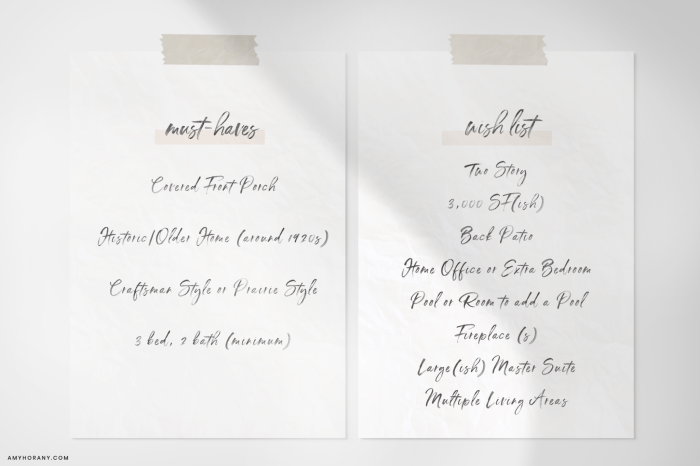 must-haves
Covered Front Porch
Historic/Older Home (around 1920s)
Craftsman Style or Prairie Style
3 bed, 2 bath (minimum)
wish list
Two Story
3,000 SF(ish)
Back Patio
Home Office or Extra Bedroom
Pool or Room to add a Pool
Fireplace (s)
Large(ish) Master Suite
Multiple Living Areas
AMYHORANY.COM